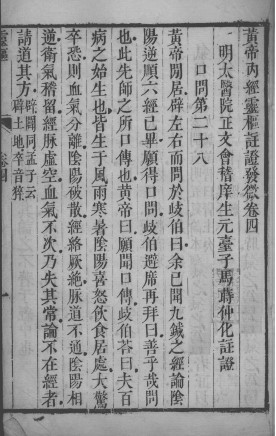 黃帝內經靈樞註證發微卷四
明太醫院正文會稽庠生元臺子馬蒔仲化註證
口問第二十八
黃帝閒居辟左右而問於岐伯曰余已聞九鍼之經論陰
陽逆順六經已畢願得口問岐伯避席再拜曰善乎哉問
也此先師之所口傳也黃帝曰願聞口傳岐伯荅曰夫百
病之始生也皆生于風雨寒暑陰陽喜怒飲食居處大驚
卒恐則血氣分離陰陽破散經絡厥絕脉道不通陰陽相
逆衛氣稽留經脉虛空血氣不次乃失其常論不在經者
請道其方
辟闢同孟子云
辟土地卒音猝
靈樞
卷四